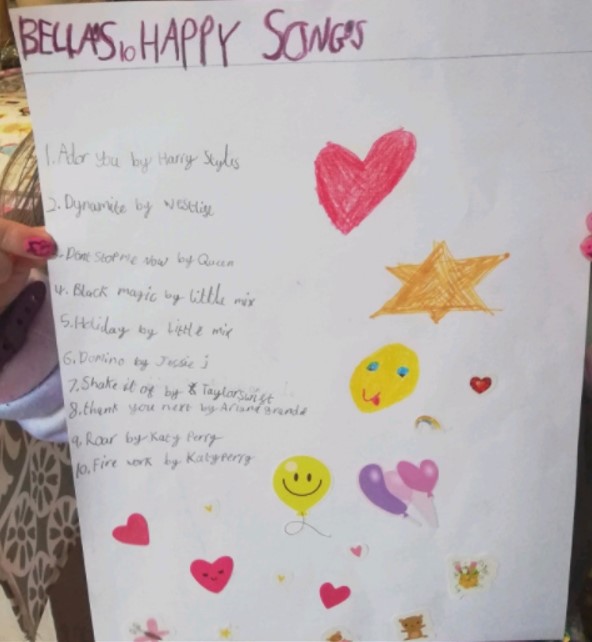 BELLA'S 10 HAPPY SONGS
1. Ador you by Harry Styles
2. Dynamite by westlife
3. Dont stop me now by Queen
4. Black magic by little mix
5. Holiday by little mix
6. Domino by Jessie j
7. Shake it of by Taylor swift
8. thank you next by Ariana grande
9. Roar by Katy Perry
10. Fire work by Katy Perry